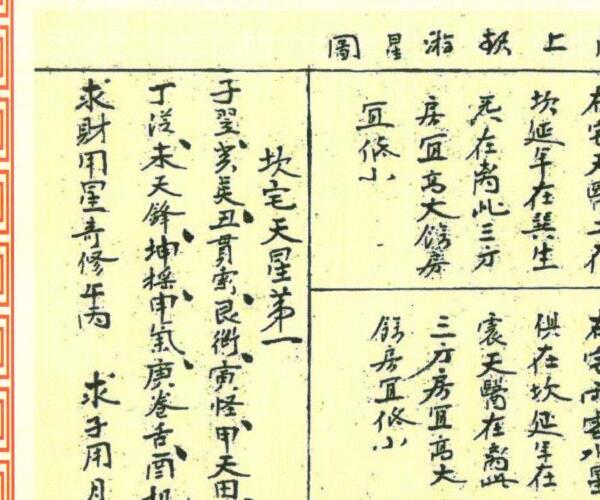 上　遊星圖
坎延年在巽生
炁在离此三方
房宜高大餘房
宜低小
俱在坎延年在
震天醫在离此
三方房宜高大
餘房宜低小
坎宅天星第一
子翌亥奚丑貫索艮衝寅怪甲天田
丁從未天鋒坤搖申氣庚卷舌酉
求財用星奇修午丙　求子用月